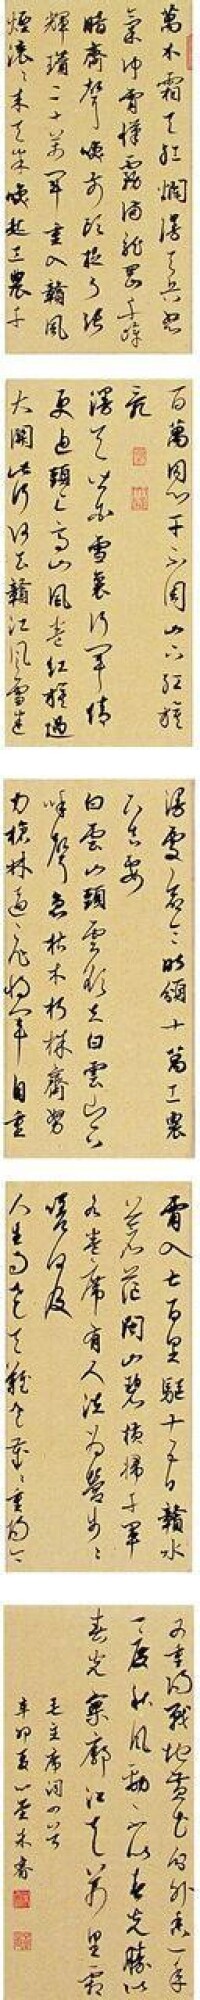 萬木霜天紅爛漫天兵怒
氣沖霄漢霧滿龍岡千嶂
暗齊聲喚前頭捉了張
輝瓚二十萬軍重入贛風
煙滾滾來天半喚起工農千
百萬同心干不周山下紅旗
亂
漫天皆白雪裏行軍情
更迫頭上高山風卷紅旗過
大關此行何去贛江風雪迷
漫處命令昨頒十萬工農
下吉安
白雲山頭雲欲立白雲山下
呼聲急枯木朽株齊努
力槍林逼飛將軍自重
霄入七百里驅十五日贛水
蒼茫閩山碧橫掃千軍
如卷席有人泣為營步步
嗟何及
人生易老天難老歲歲重陽今
又重陽戰地黃花分外香一年
一度秋風勁不似春光勝似
春光寥廓江天萬里霜
毛主席詞四首
辛卯夏